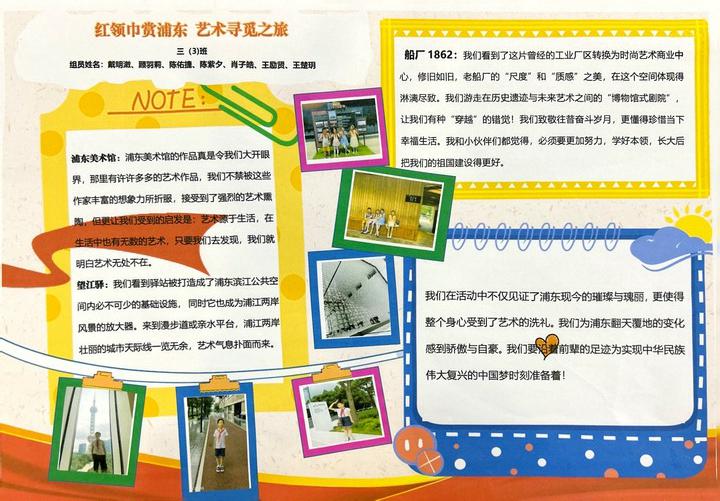 红领巾赏浦东 艺术寻觅之旅
三（3)班
NOTE:
浦东美术馆：浦东美术馆的作品真是令我们大开眼
界，那里有许许多多的艺术作品，我们不禁被这些
作家丰富的想象力所折服，接受到了强烈的艺术熏
陶，但更让我们受到的启发是：艺术源于生活，在
生活中也有无数的艺术，只要我们去发现，我们就
明白艺术无处不在。
望江驿：我们看到驿站被打造成了浦东滨江公共空
间内必不可少的基础设施， 同时它也成为浦江两岸
风景的放大器。来到漫步道或亲水平台，浦江两岸
壮丽的城市天际线一览无余，艺术气息扑面而来。
船厂 1862：我们看到了这片曾经的工业厂区转换为时尚艺术商业中
心，修旧如旧，老船厂的“尺度”和“质感”之美，在这个空间体现得
淋漓尽致。我们游走在历史遗迹与未来艺术之间的“博物馆式剧院”，
让我们有种“穿越”的错觉！我们致敬往昔奋斗岁月，更懂得珍惜当下
幸福生活。我和小伙伴们都觉得，必须要更加努力，学好本领，长大后
把我们的祖国建设得更好。
我们在活动中不仅见证了浦东现今的璀璨与瑰丽，更使得
整个身心受到了艺术的洗礼。我们为浦东翻天覆地的变化
感到骄傲与自豪。我们要沿着前辈的足迹为实现中华民族
伟大复兴的中国梦时刻准备着！